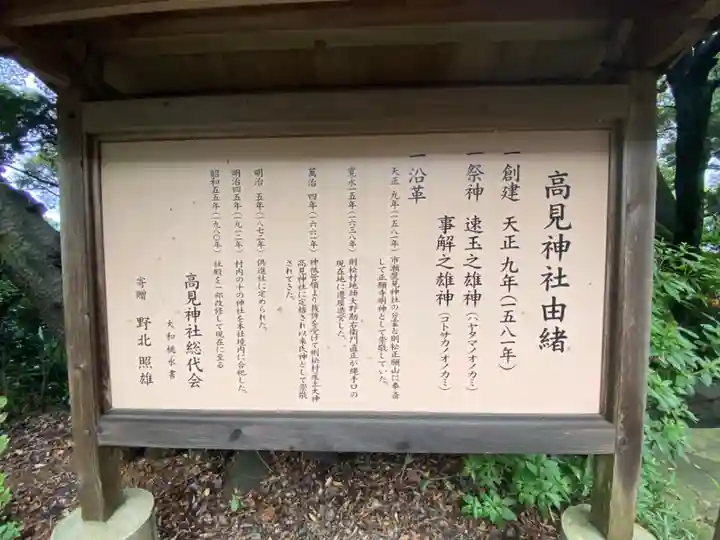 高見神社由緒
一 創建 天正 九年(一五八一年)
一 祭神 速玉之雄神(ハヤタマノオノカミ)
事解之雄神(コトサカノオノカミ)
一 沿革
天正 九年(一五八一) 市瀬鷹見神社の分霊を則松正願山に奉斎
して正願寺明神として崇敬していた。
寛永一五年(一六三八) 則松村地頭大野勘右衛門直正が縄手口の
現在地に遷座造営した。
萬治 四年(一六六一) 神祇管領より裁許を受けて則松村産土大神
高見神社に定格され以来氏神として崇敬
されてきた。
明治 五年(一八七二) 供進社に定められた。
明治四五年(一九一二) 村内の十の神社を本社境内に合祀した。
昭和五五年(一九八〇年) 社殿を一部改修して現在に至る
高見神社総代会
大和桃永書
寄贈 野北照雄